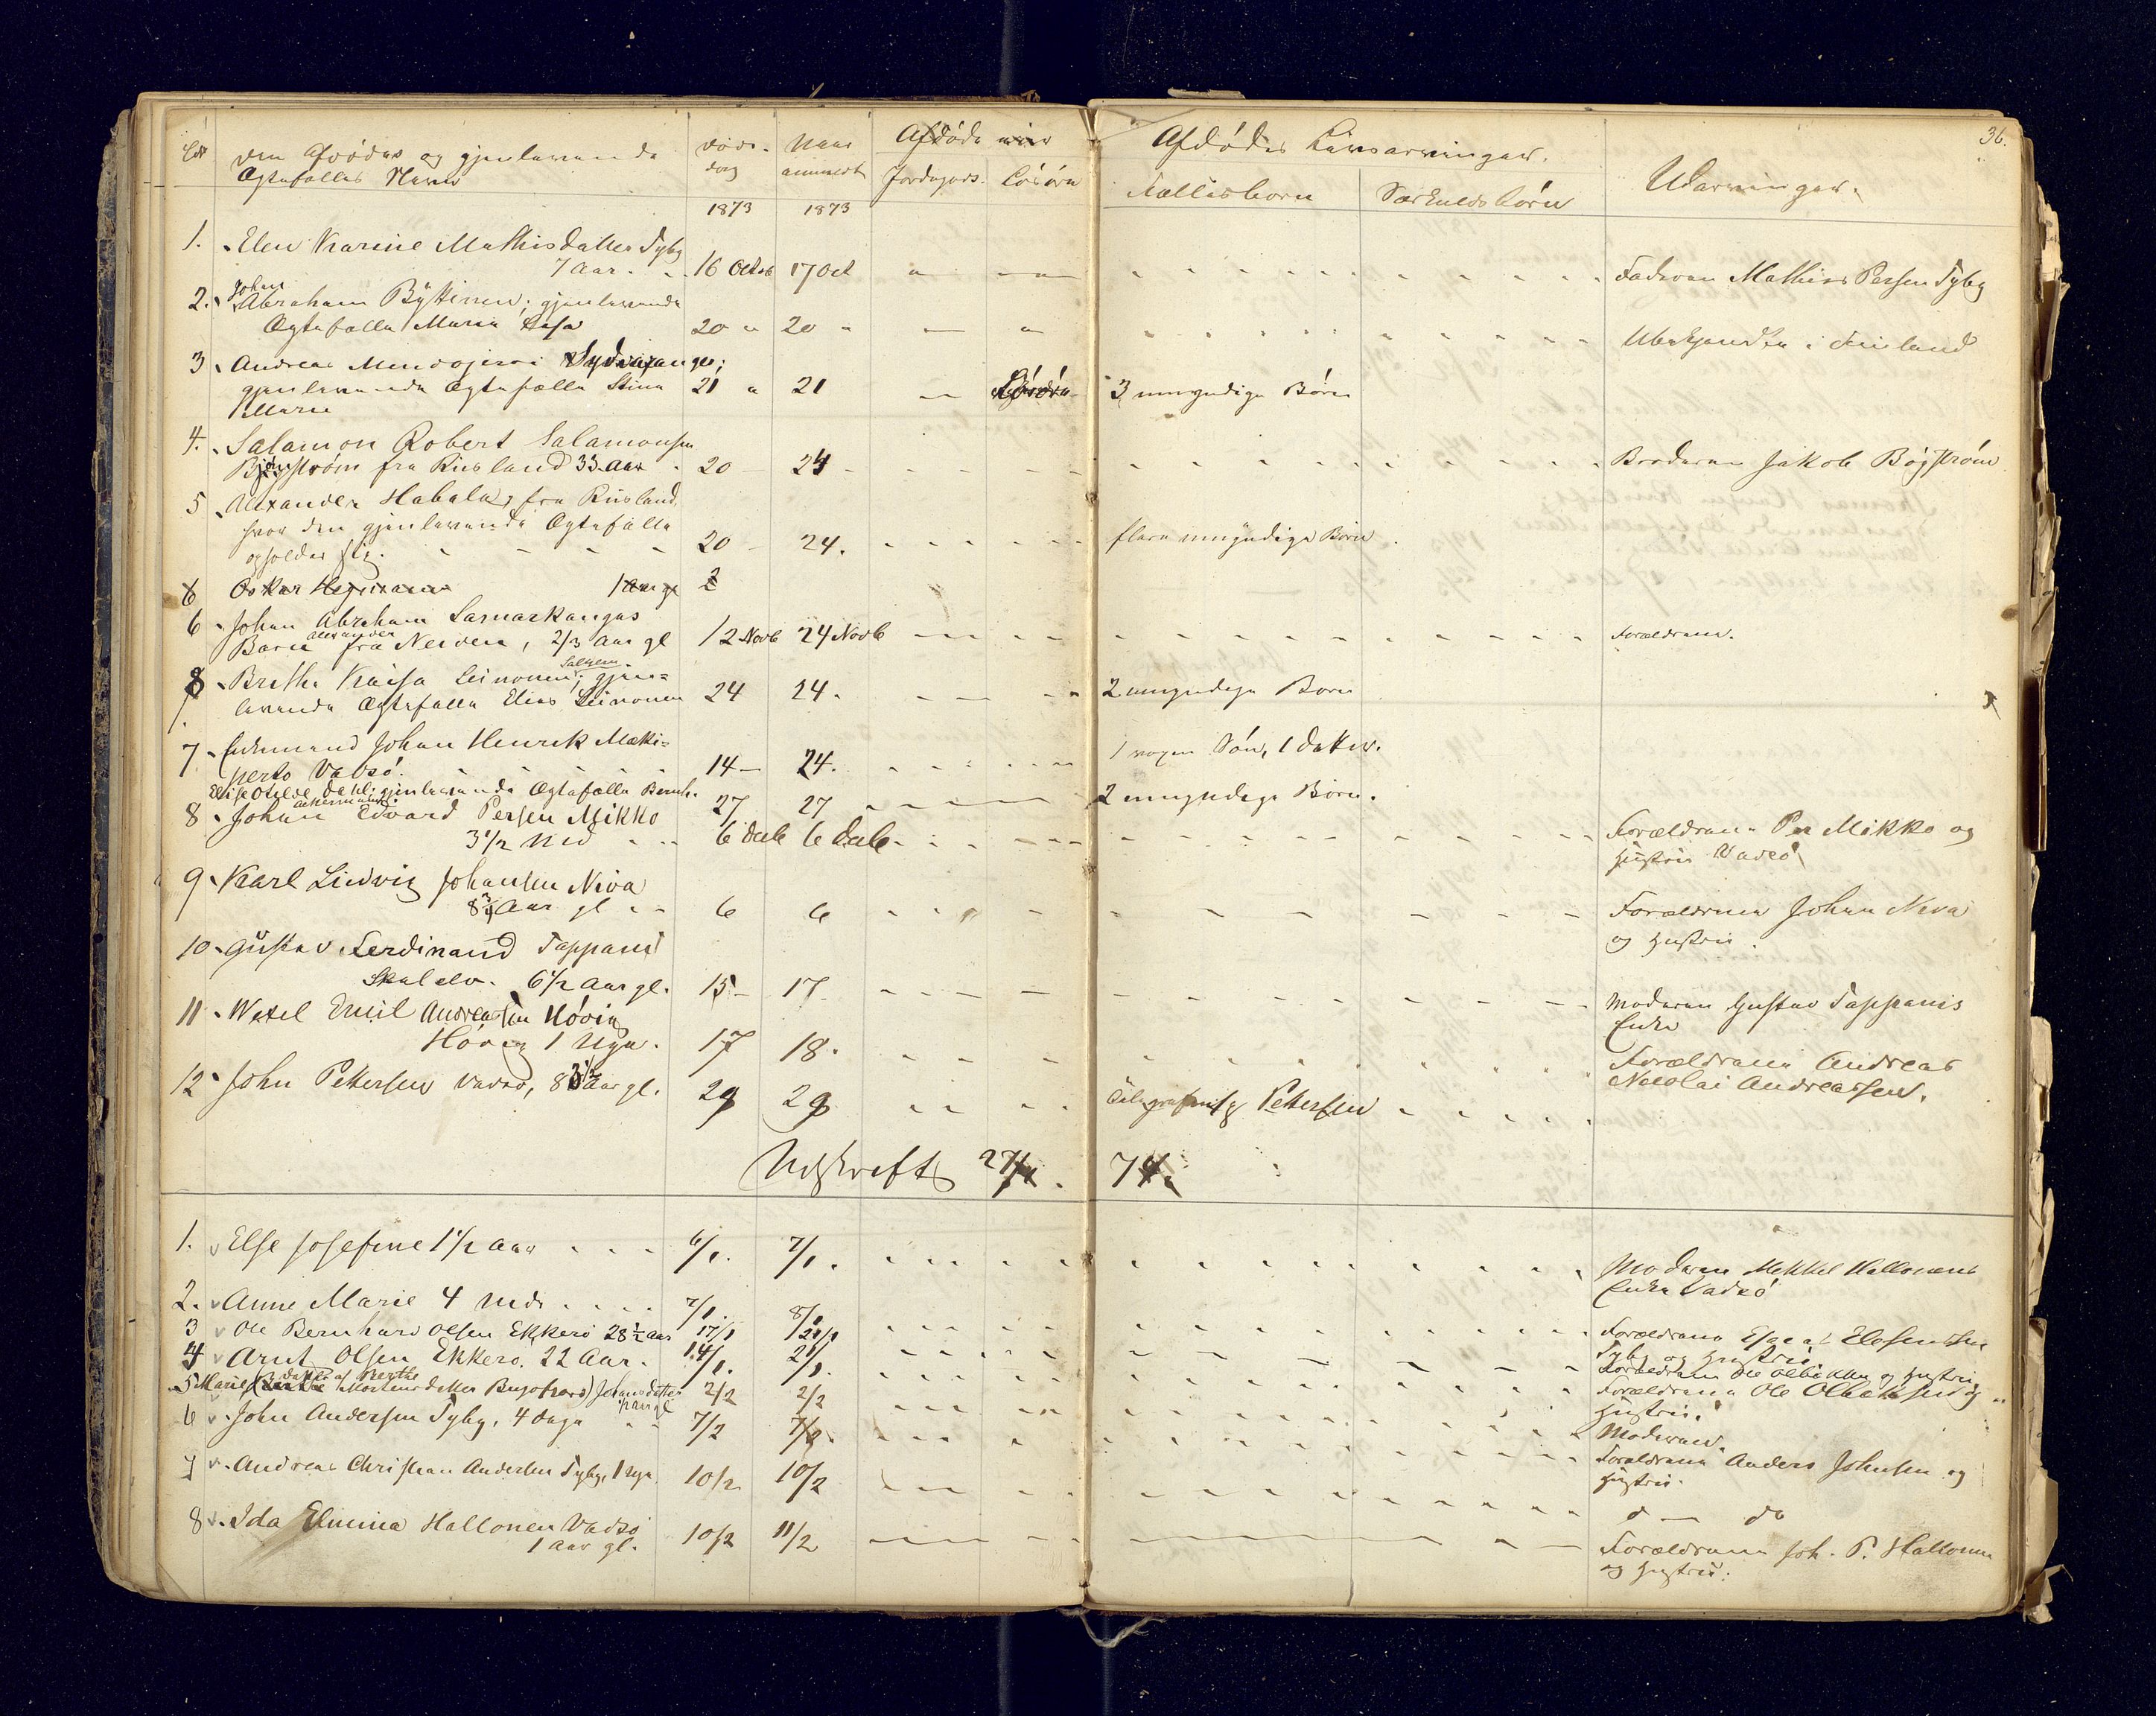 36.
Den Afdødes og gjenlevende
Ægtefælles Navn
Døds-
dag
Naar
anmeldt
Afdøde
Jordegods. Løsøre
Afdødes Livsarvinger.
Fællesbørn Særkuldsbørn
Udarvinger.
1873 1873
1. Elen Karine Mathisdatter Tyby
7 Aar. 16 Octob 17 Oct Faderen Mathis Persen Tyby
Johan
2. Abraham Byttinen; gjenlevende
Ægtefælle Maria 20 20 Ubekjendte i Finland
3 Andreas Sydvaranger;
gjenlevende Ægtefælle Stina 21 21 Løsøre 3 umyndige Børn
Maria
4. Salamon Robert Salamonsen
fra Rusland 33 Aar 20 24 Broderen Jakob
5 Alexander Habala, fra Rusland,
hvor den gjenlevende Ægtefælle
opholder sig. 20 24. flere umyndige Børn
6 Oskar 1 Aar gl 2
6 Johan Abraham Sarnarkangas
Barn Alexander fra Neiden, 2/3 Aar gl 12 Novb 24 Novb Forældrene.
8 Bretha Kaisa Leinonen; gjen=
levende Ægtefælle Elias Leinonen 24 24. 2 umyndige Børn
7 Enkemand Johan Henrik Mæki=
perto Vadsø. 14 24. 1 voxen Søn, 1 Datter.
Elise Otilde Dahl; gjenlevende Ægtefælle Bernh.
Ackermann. 27 27 2 umyndige Børn.
8 Johan Edvard Persen Mikko
3 1/2 Md 6 Decb 6 Decb Forældrene Per Mikko og
Hustru Vadsø
9 Karl Ludvig Johansen Niva
8 3/4 Aar gl 6 6 Forældrene Johan Niva
og Hustru.
10 Gustav Ferdinand Tappani
Skalelv. 6 1/2 Aar gl. 15 17 Moderen Gustav Tappanis
Enke
11 Wexel Emil Andreassen Høvig
Høvig 1 Uge. 17 18. Forældrene Andreas
Nicolai Andreassen.
12 John Pettersen Vadsø, 8 Aar gl. 29 29 Pettersen
Udskrift 27/1 74.
1. Else Josefine 1 1/2 Aar 6/1. 7/1. Moderen Mikkel Hallonens
Enke Vadsø
2. Anne Marie 4 Mdr 7/1. 8/1 Forældrene
Tyby og Hustru.
3 Ole Bernhard Olsen Ekkerø 28 1/2 Aar 17/1 21/1 Forældrene Ole og Hustru
4 Arnt Olsen Ekkerø. 22 Aar. 14/1. 21/1. Forældrene Ole og
Hustru.
datter af Berthe
5 Marie ( Mortensdatter Bugøfjord) Johansdatter 2/2 2/2 Moderen.
6 John Andersen Tyby, 4 Dage 7/2 7/2. Forældrene Anders Johnsen og
Hustru.
7 Andreas Christian Andersen Tyby, 1 Uge 10/2 10/2 d — do
8 Ida Elmina Hallonen Vadsø
1 Aar gl. 10/2 11/2 Forældrene Joh. P. Hallonen
og Hustru.